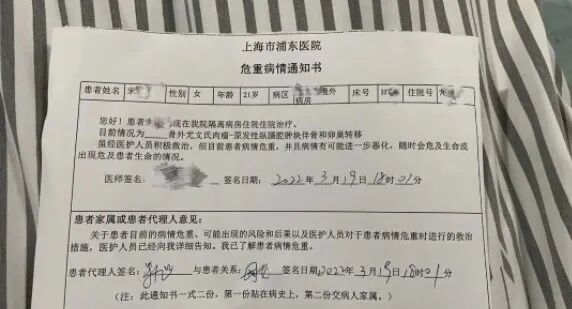 上海市浦东医院
危重病情通知书
患者姓名 宋 性别 女 年龄 21岁 病区 外病房 床号 住院号
您好！患者 现在我院隔离病房住院治疗。
目前情况为 骨外尤文氏肉瘤-原发性纵膈腔肿块伴骨和卵巢转移
虽经医护人员积极救治，但目前患者病情危重，并且病情有可能进一步恶化，随时会危及生命或
出现危及患者生命的情况。
医师签名： 签名日期：2022年3月19日18时01分
患者家属或患者代理人意见：
关于患者目前的病情危重、可能出现的风险和后果以及医护人员对于患者病情危重时进行的救治
措施，医护人员已经向我详细告知。我已了解患者病情危重。
患者代理人签名： 与患者关系： 签名日期2022年3月19日18时01分
（注：此通知书一式二份，第一份贴在病史上，第二份交病人家属。）